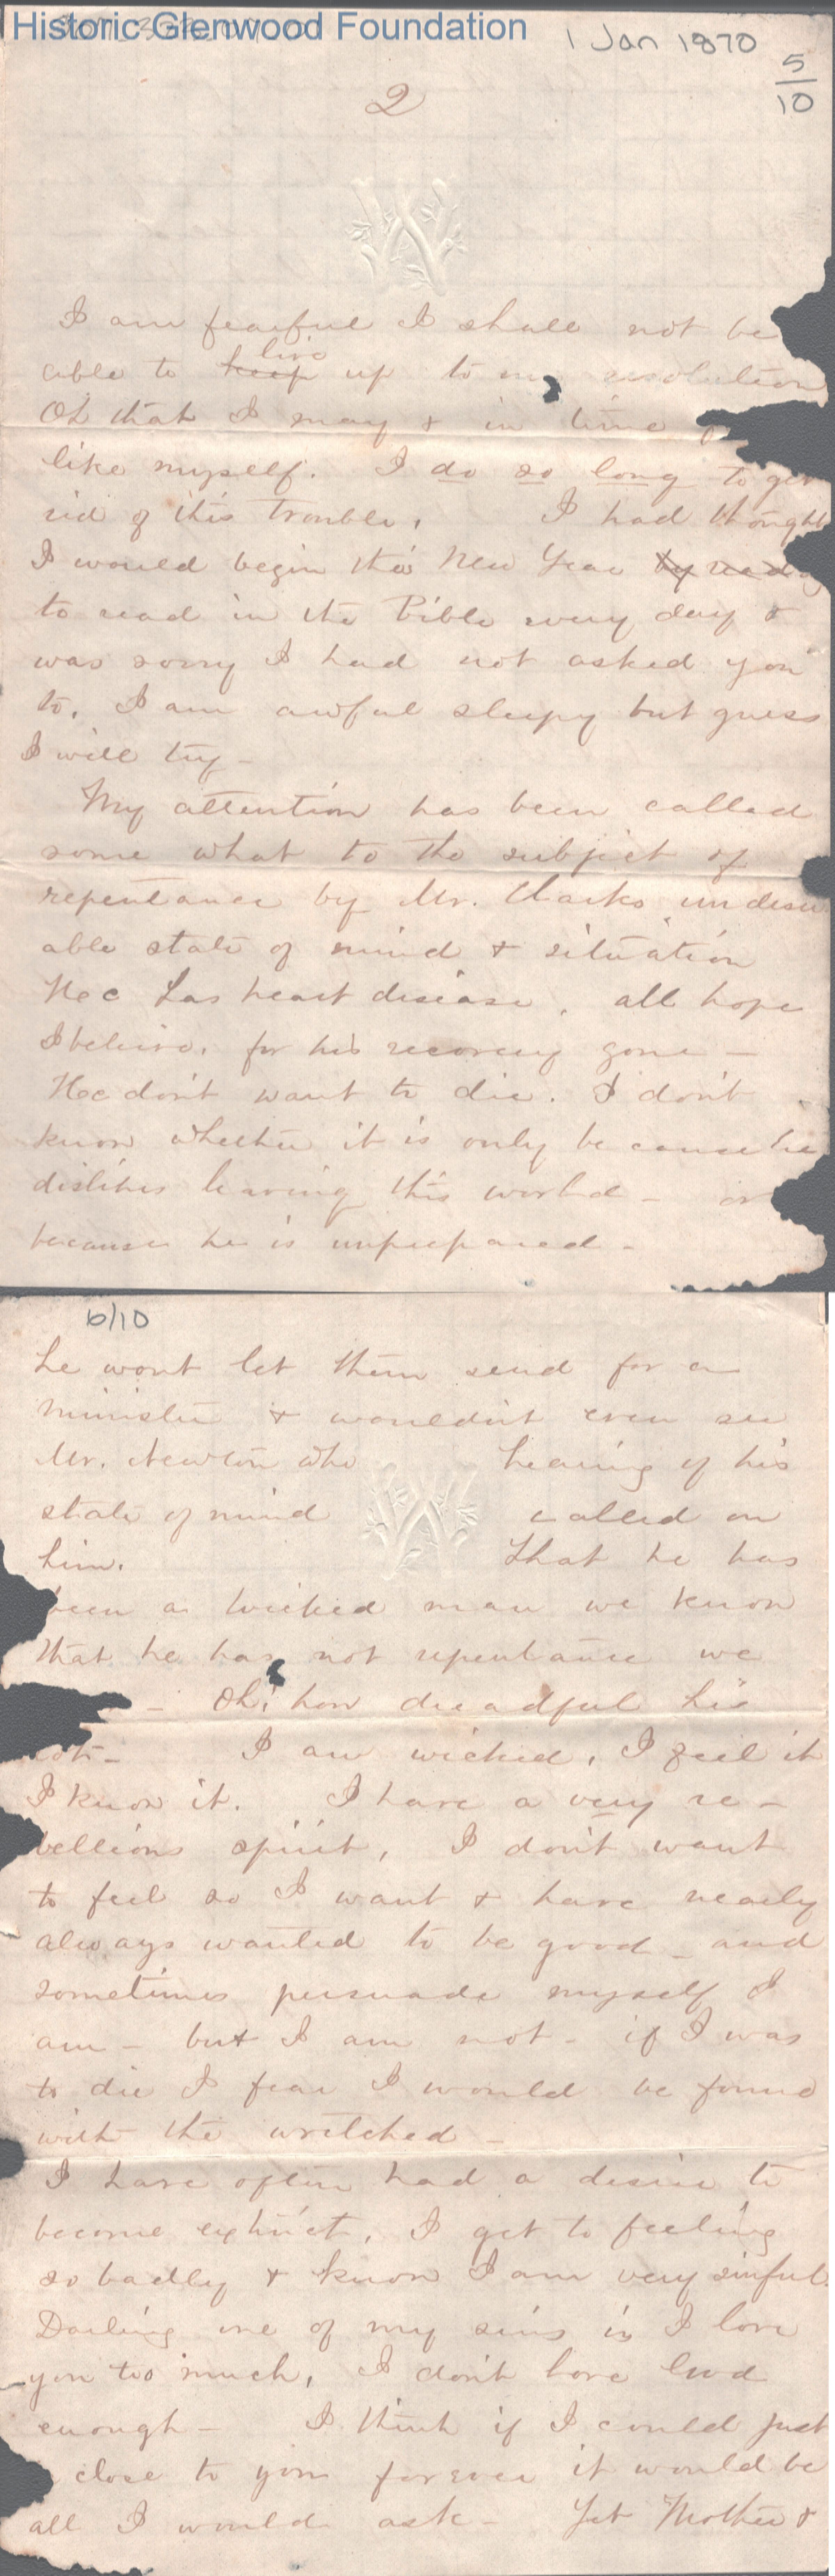 Historic Glenwood Foundation
1 Jan 1870
5/10
2
W
I am fearful I shall not be
able to keep live up to my resolution
Oh that I may & in time
like myself. I do so long to get
rid of this trouble, I had thought
I would begin the New Year by reading
to read in the Bible every day &
was sorry I had not asked you
to. I am awful sleepy but guess
I will try -
My attention has been called
some what to the subject of
repentance by Mr. Clarks undesir
able state of mind & situation
Hee has heart disease, all hope
I believe, for his recovery gone -
Hee don't want to die. I don't
know whether it is only because he
dislikes leaving this world - or
because he is unprepared -
6/10
he wont let them send for a
minister & wouldn't even see
Mr. Newton who hearing of his
state of mind called on
him. That he has
W
been a wicked man we know
that he has not repentance we
- Oh! how dreadful his
lot - I am wicked, I feel it
I know it. I have a very re -
bellious spirit, I don't want
to feel so I want & have nearly
always wanted to be good - and
sometimes persuade myself I
am - but I am not - if I was
to die I fear I would be found
with the wretched -
I have often had a desire to
become extinct, I get to feeling
so badly & know I am very sinful.
Darling one of my sins is I love
you too much, I don't love God
enough - I think if I could just
close to you forever it would be
all I would ask - Yet Mother &